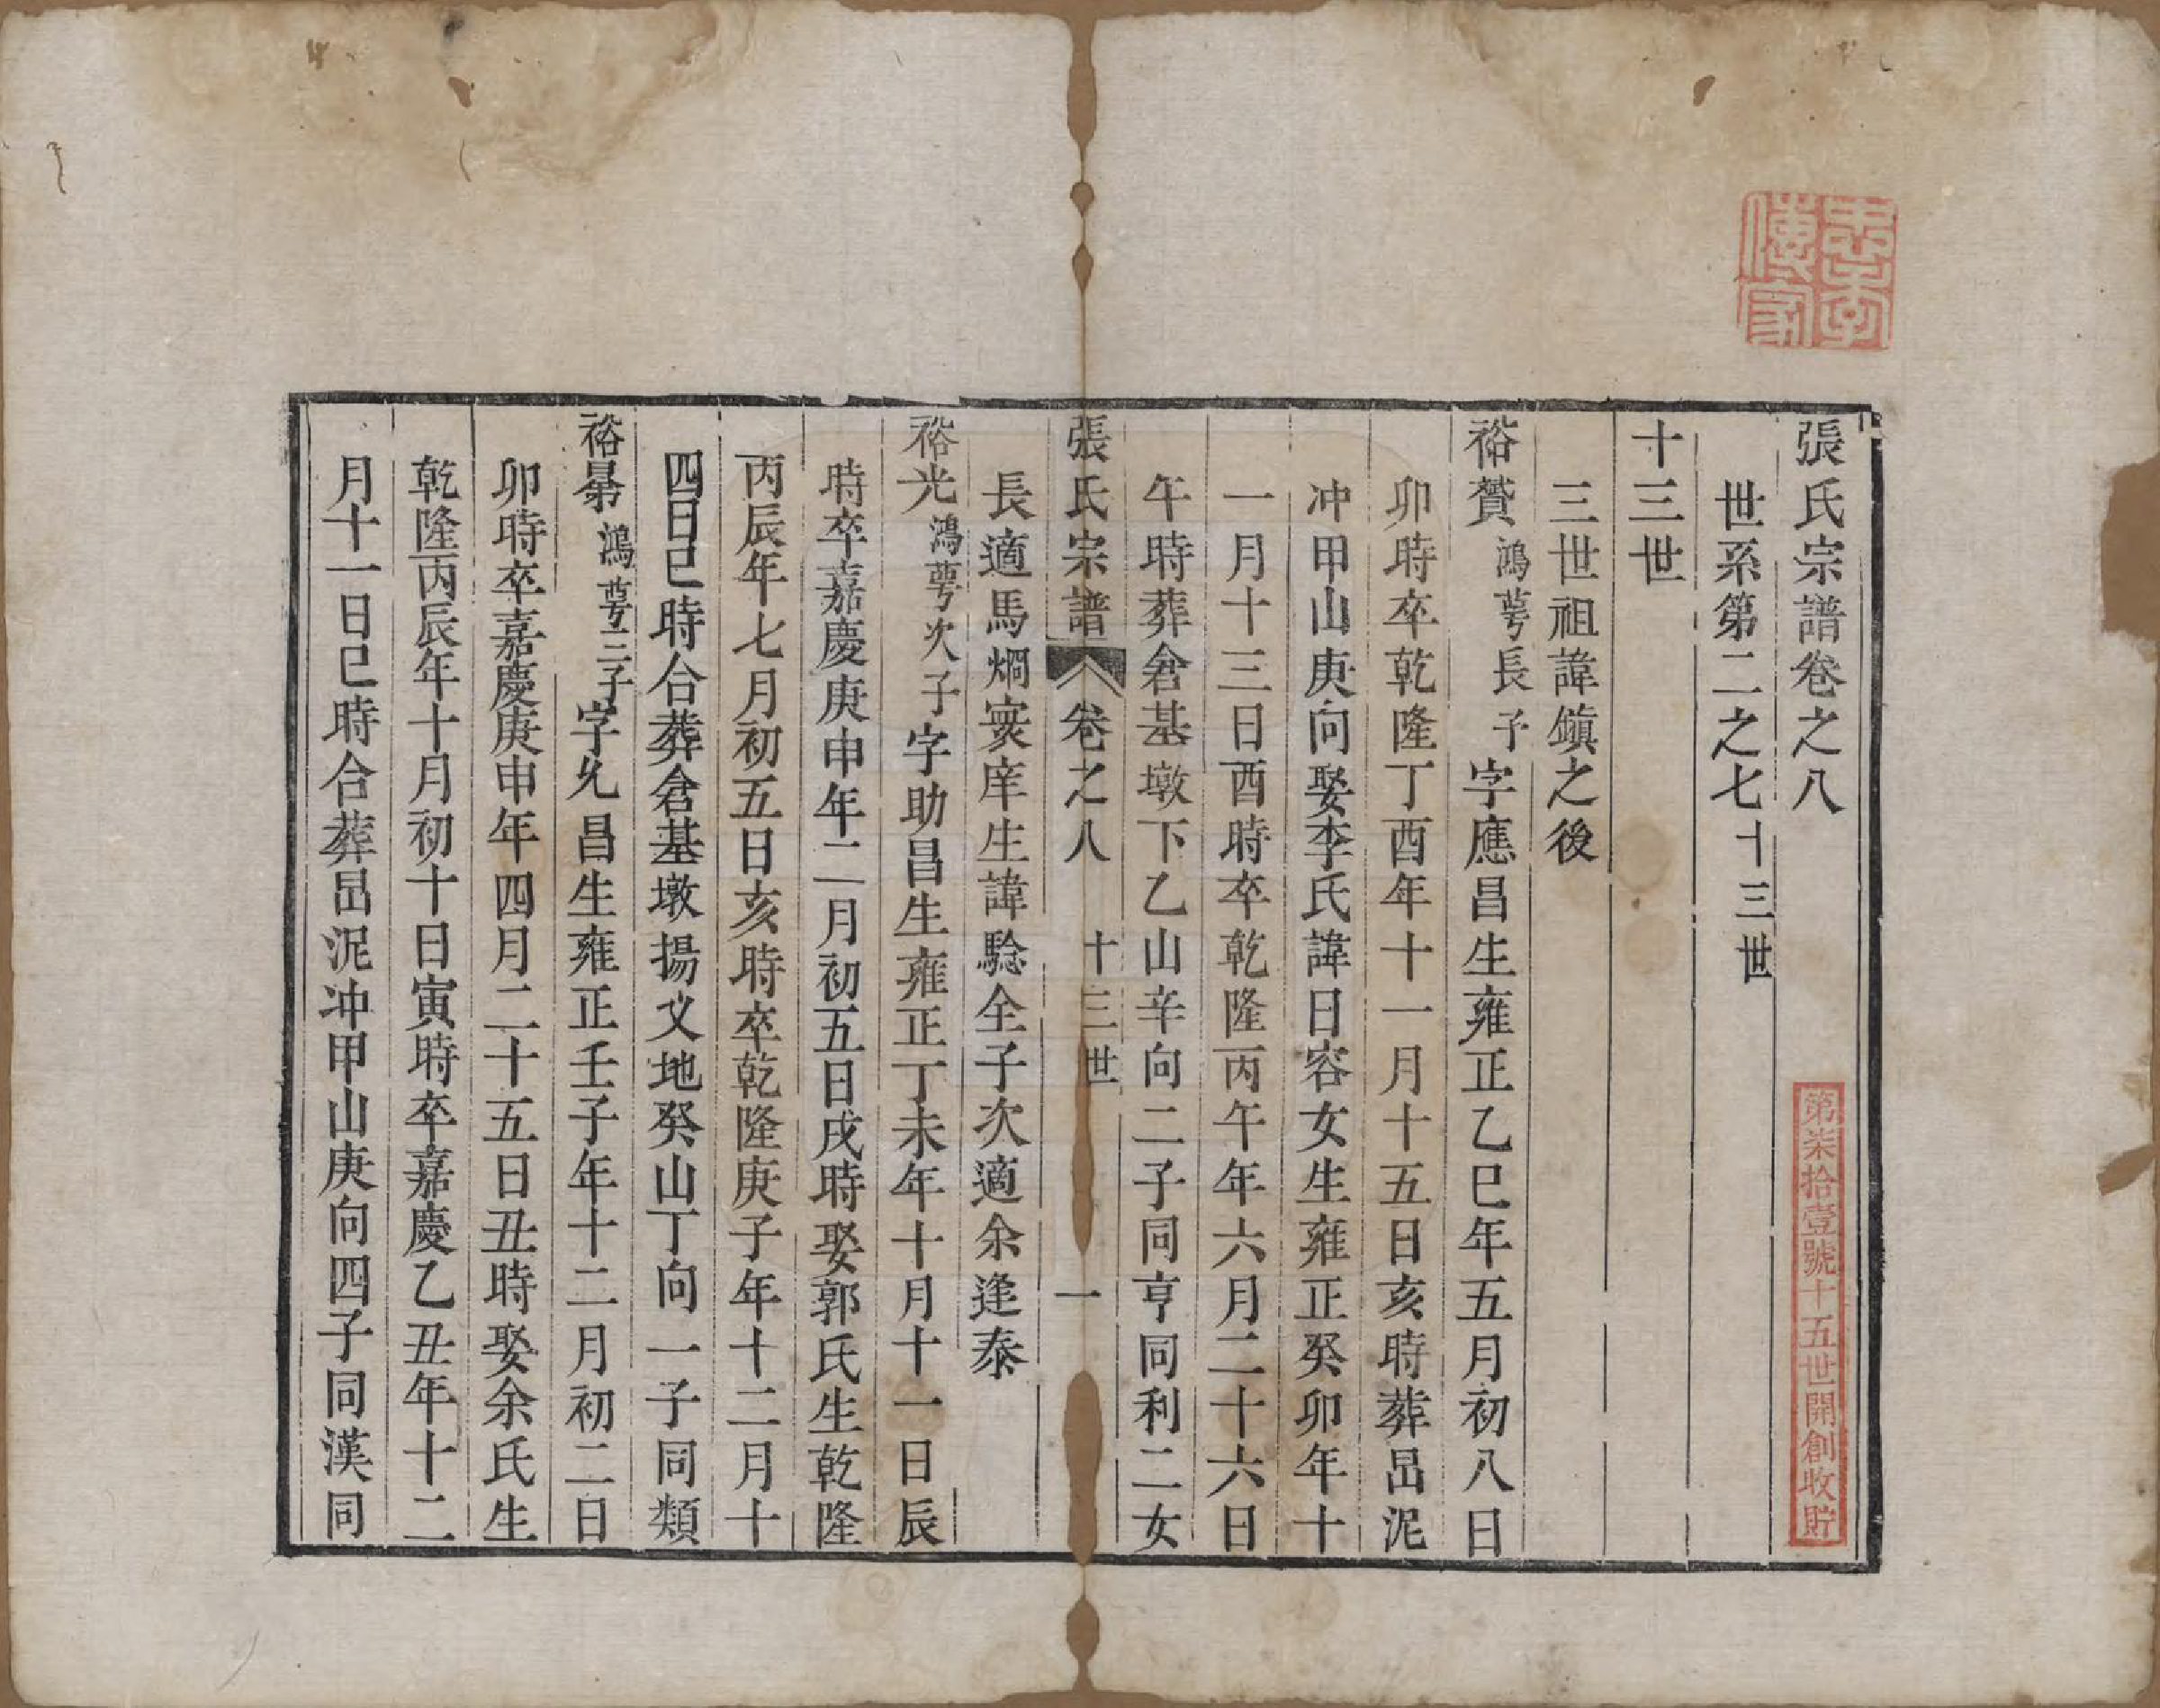 忠孝傳家
張氏宗譜卷之八
第柒拾壹號十五世開創收貯
世系第二之七十三世
十三世
三世祖諱鎮之後
裕贊鴻蕚長子字應昌生雍正乙巳年五月初八日
卯時卒乾隆丁酉年十一月十五日亥時葬昌泥
冲甲山庚向娶李氏諱日容女生雍正癸卯年十
一月十三日酉時卒乾隆丙午年六月二十六日
午時葬倉基墩下乙山辛向二子同亨同利二女
張氏宗譜卷之八十三世一
長適馬烱寰庠生諱騐全子次適余逢泰
裕光鴻蕚次子字助昌生雍正丁未年十月十一日辰
時卒嘉慶庚申年二月初五日戌時娶郭氏生乾隆
丙辰年七月初五日亥時卒乾隆庚子年十二月十
四日巳時合葬倉基墩揚文地癸山丁向一子同類
裕㬎鴻蕚三子字允昌生雍正壬子年十二月初二日
卯時卒嘉慶庚申年四月二十五日丑時娶余氏生
乾隆丙辰年十月初十日寅時卒嘉慶乙丑年十二
月十一日巳時合葬昌泥冲甲山庚向四子同漢同